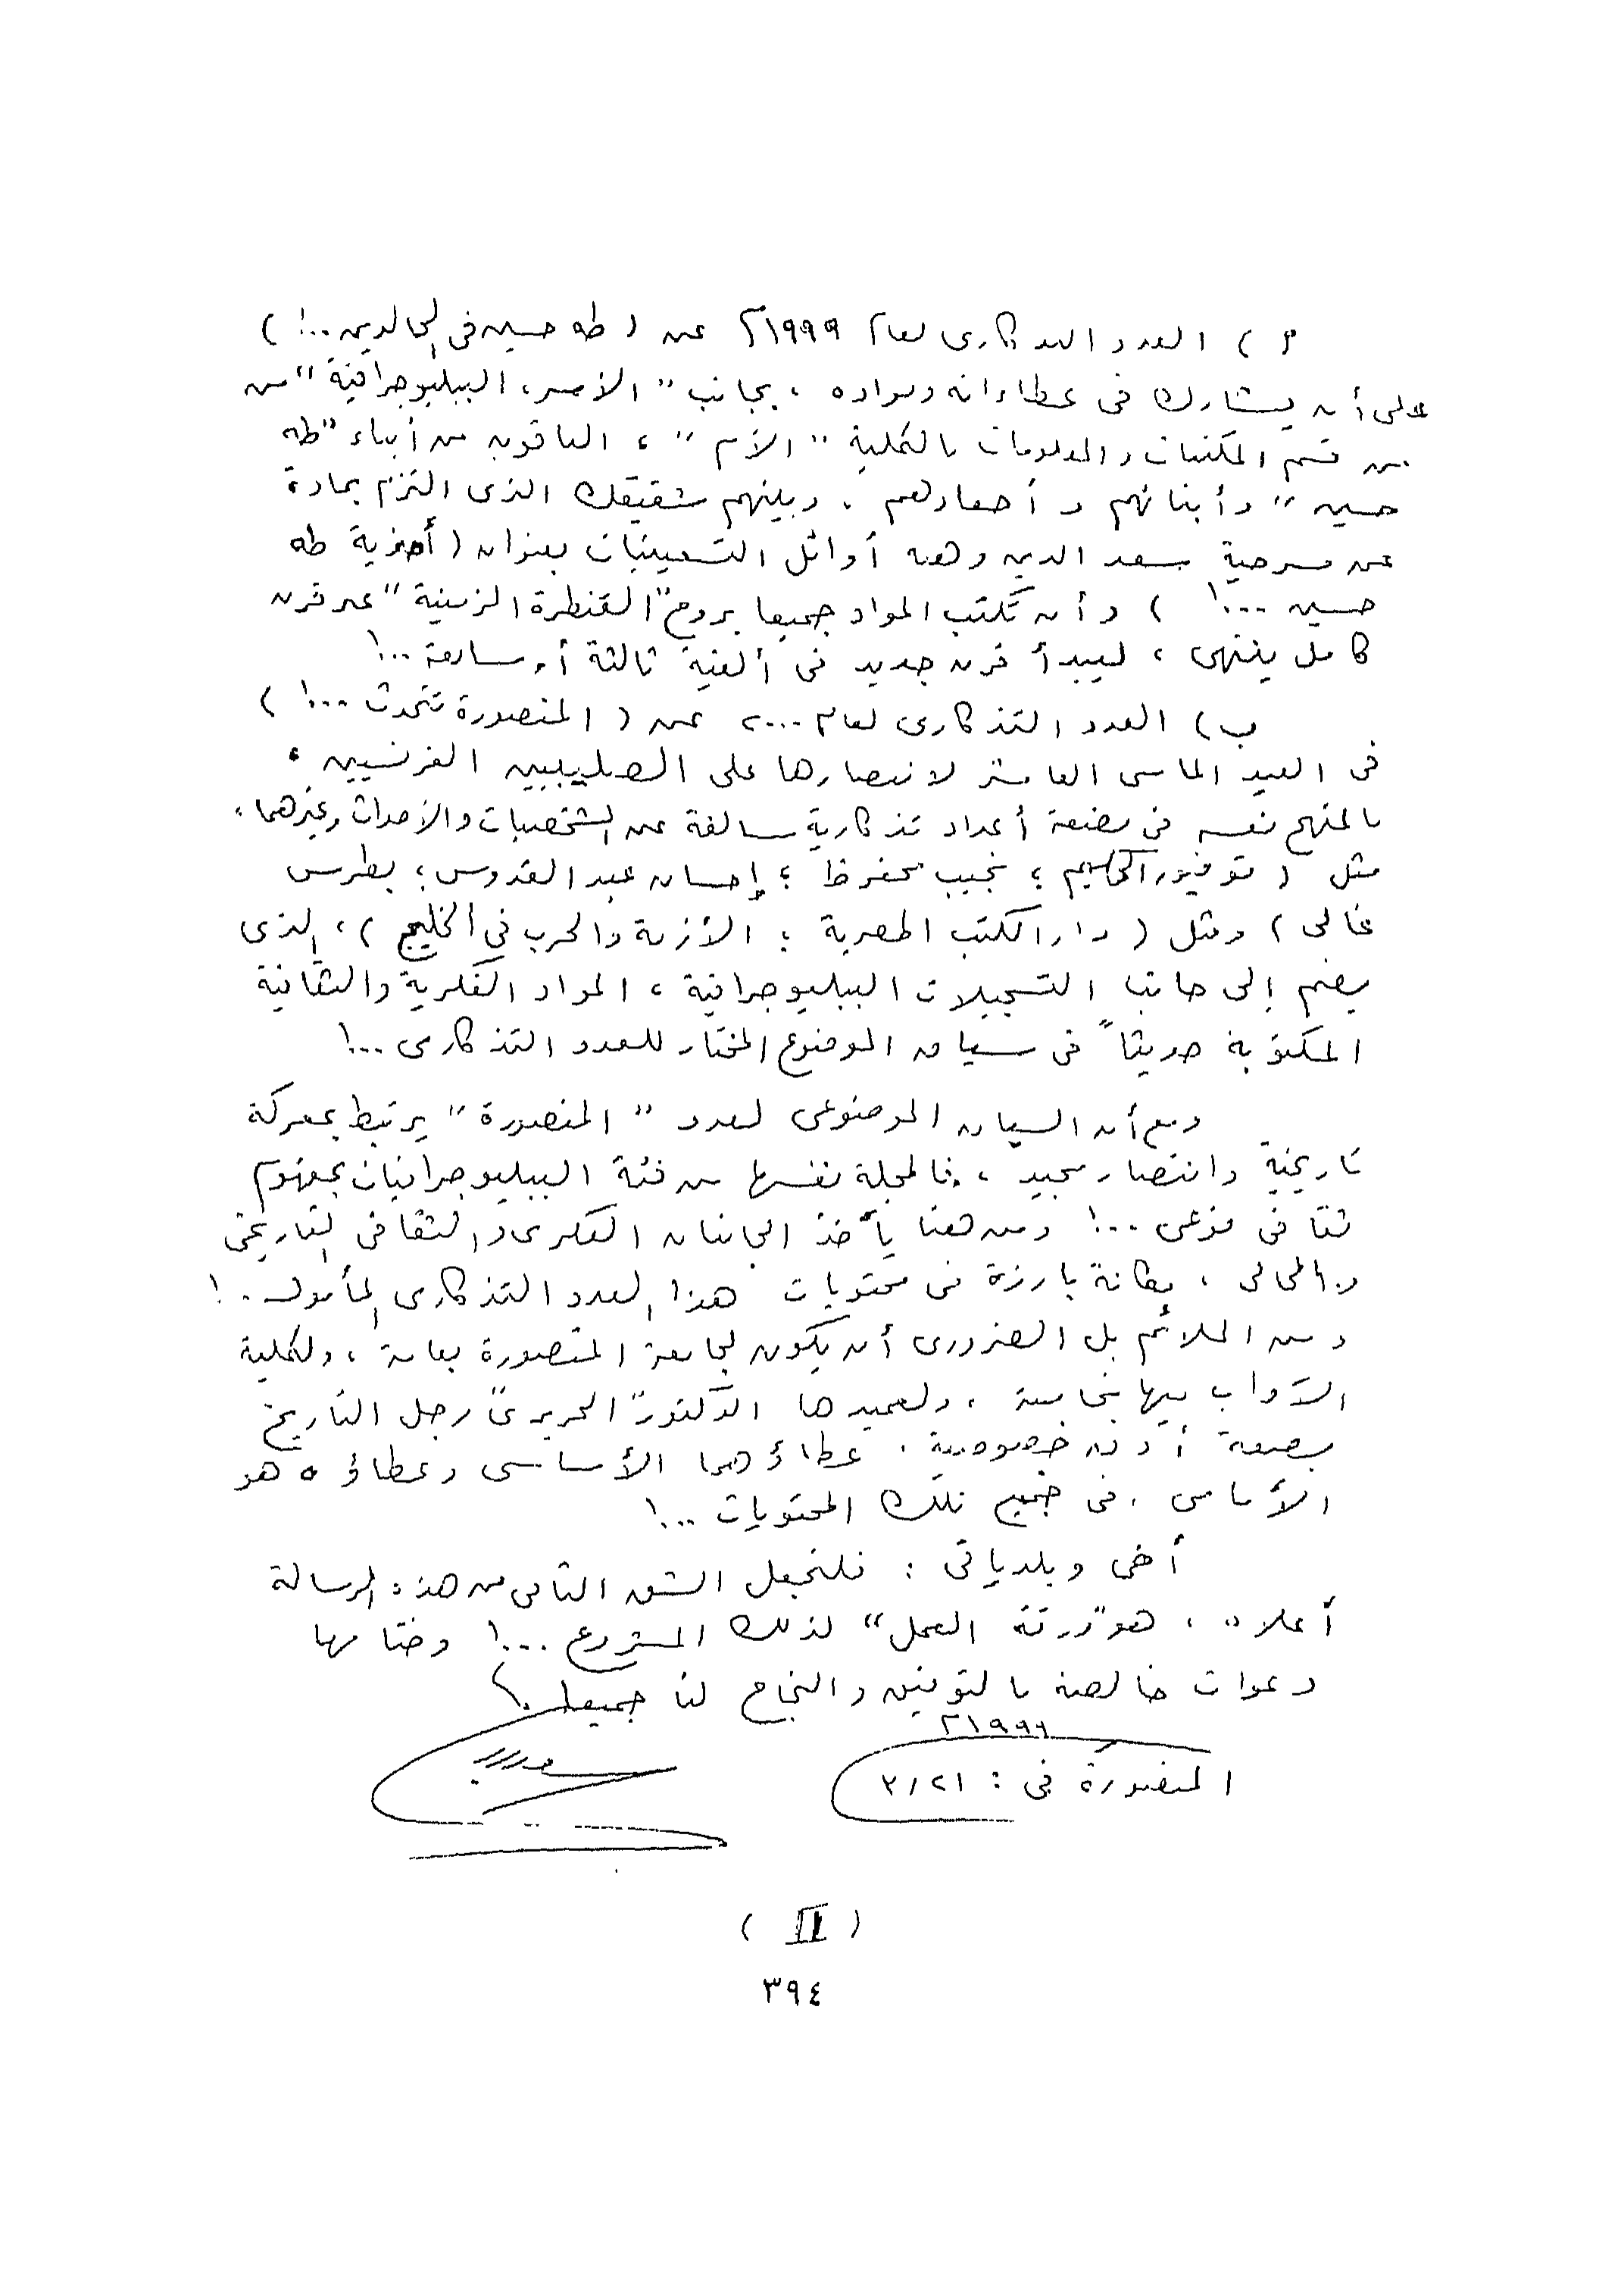 أ ) العدد التذكارى لعام ١٩٩٩م عن ( طه حسين فى الخالدين ..! )
على أن يشارك فى عطاءاته ومواده ، بجانب " الأسر، الببليوجرافية " من
من قسم المكتبات والمعلومات بالكلية " الأم " ، الباقون من أبناء " طه
حسين " وأبنائهم وأحفادهم . وبينهم شقيقك الذى التزم بمادة
عن مسرحية سعد الدين وهبه أوائل التسعينيات بعنوان ( أحزية طه
حسين ...! ) وأن تكتب المواد جميعا بروح " القنطرة الزمنية " عبر قرن
كامل ينتهى ، ليبدأ قرن جديد فى ألفية ثالثة أو سابعة ..!
ب ) العدد التذكارى لعام ٢٠٠٠ عن ( المنصورة تتحدث ...! )
فى العيد الماسى العاشر لانتصارها على الصليبيين الفرنسيين ،
بالمنهج نفسه فى بضعة أعداد تذكارية سالفة عن الشخصيات والأحداث وغيرهما ،
مثل ( توفيق الحكيم ؛ نجيب محفوظ ؛ إحسان عبد القدوس ؛ بطرس
غالى ) ومثل ( دار الكتب المصرية ؛ الأزمة والحرب فى الخليج ) ، الذى
يضم إلى جانب التسجيلات الببليوجرافية ، المواد الفكرية والثقافية
المكتوبة حديثاً فى سياق الموضوع المختار للعدد التذكارى ..!
ومع أن السياق الموضوعى لعدد " المنصورة " يرتبط بمعركة
تاريخية وانتصار مجيد ، فالمجلة نفسها من فئة الببليوجرافيات بمفهوم
ثقافى نوعى ..! ومن هنا يأخذ الجانبان الفكرى والثقافى التاريخى
والحالى ، مكانة بارزة فى محتويات هذا العدد التذكارى المأمول .!
ومن الملائم بل الضرورى أن يكون لجامعة المنصورة بعامة ، ولكلية
الآداب بيها بخاصة ، ولعميدها الدكتور " الحريرى " رجل التاريخ
بصفة أدق خصوصية ، عطاؤهما الأساسى وعطاؤه هو
الأساسى ، فى جميع تلك المحتويات ..!
أخى وبلدياتى : فلنجعل الشق الثانى من هذه الرسالة
أعلاه ، هو " ورقة العمل " لذلك المشروع ...! وختامها
دعوات خالصة بالتوفيق والنجاح لنا جميعا .!
١٩٩٦م
المنصورة فى : ٢١/٢
( II )
٣٩٤